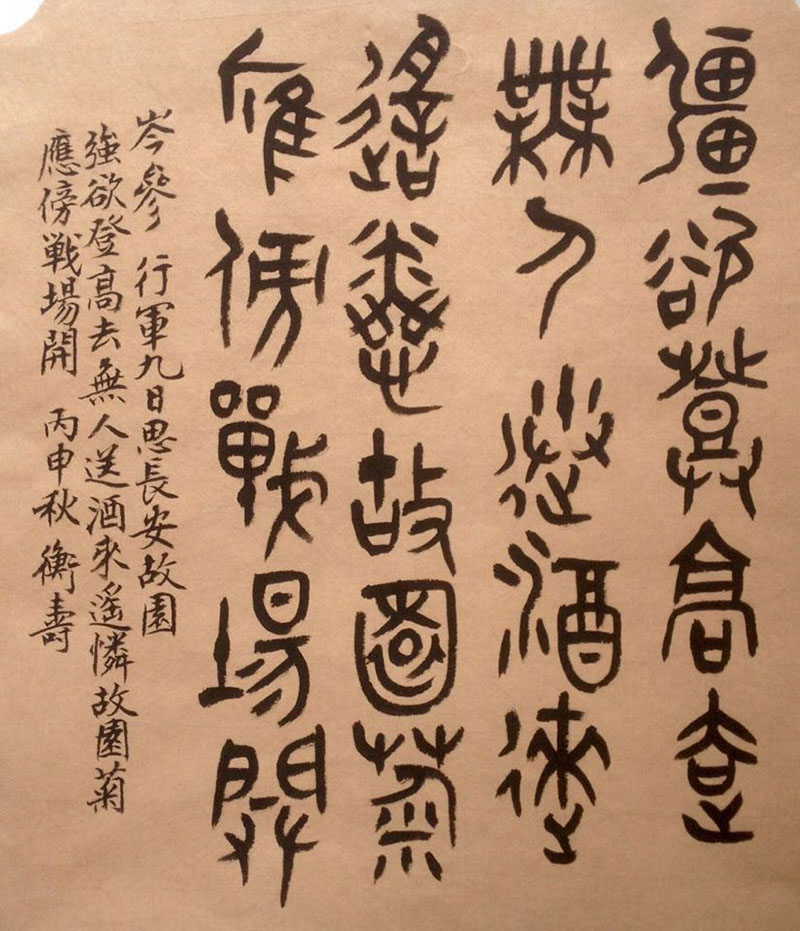 強欲登高去
無人送酒來
遙憐故園菊
應傍戰場開
岑參 行軍九日思長安故園
強欲登高去無人送酒來遙憐故園菊
應傍戦場開 丙申秋 衡壽